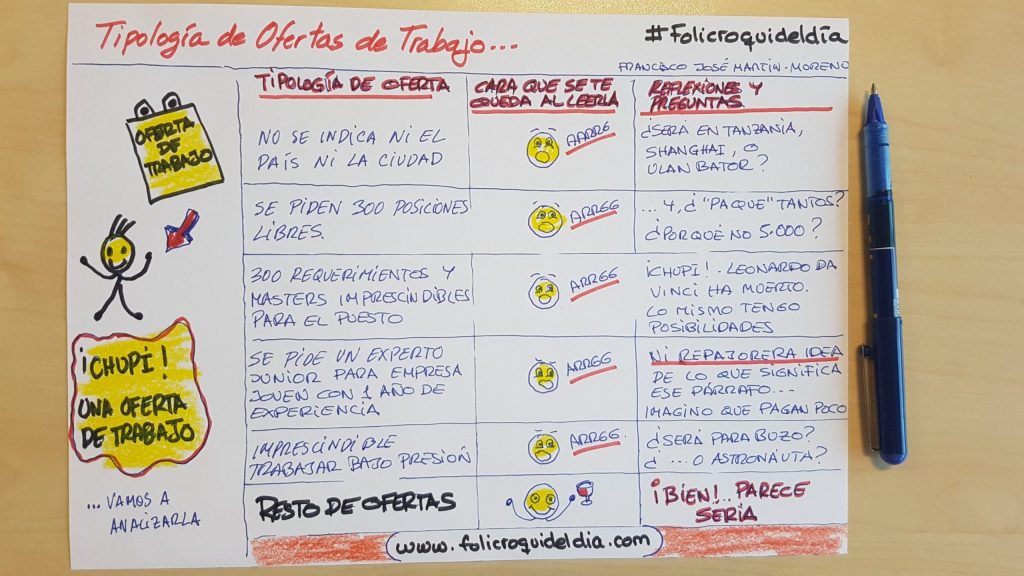 Tipología de Ofertas de Trabajo...
#Folicroquideldía
FRANCISCO JOSÉ MARTIN-MORENO
OFERTA
DE
TRABAJO
¡CHUPI!
UNA OFERTA
DE TRABAJO
...VAMOS A
ANALIZARLA
TIPOLOGÍA DE OFERTA
CARA QUE SE TE
QUEDA AL LEERLA
REFLEXIONES Y
PREGUNTAS
NO SE INDICA NI EL
PAÍS NI LA CIUDAD
ARRGG
¿SERÁ EN TANZANIA,
SHANGHAI, O
ULAN BATOR?
SE PIDEN 300 POSICIONES
LIBRES.
ARRGG
... Y, ¿"PAQUE" TANTOS?
¿PORQUÉ NO 5.000?
300 REQUERIMIENTOS Y
MASTERS IMPRESCINDIBLES
PARA EL PUESTO
ARRGG
¡CHUPI!. LEONARDO DA
VINCI HA MUERTO.
LO MISMO TENGO
POSIBILIDADES
SE PIDE UN EXPERTO
JUNIOR PARA EMPRESA
JOVEN CON 1 AÑO DE
EXPERIENCIA
ARRGG
NI REPAJORERA IDEA
DE LO QUE SIGNIFICA
ESE PÁRRAFO...
IMAGINO QUE PAGAN POCO
IMPRESCINDIBLE
TRABAJAR BAJO PRESIÓN
ARRGG
¿SERÁ PARA BUZO?
¿ ... O ASTRONAUTA?
RESTO DE OFERTAS
¡BIEN!.. PARECE
SERIA
www.folicroquideldia.com